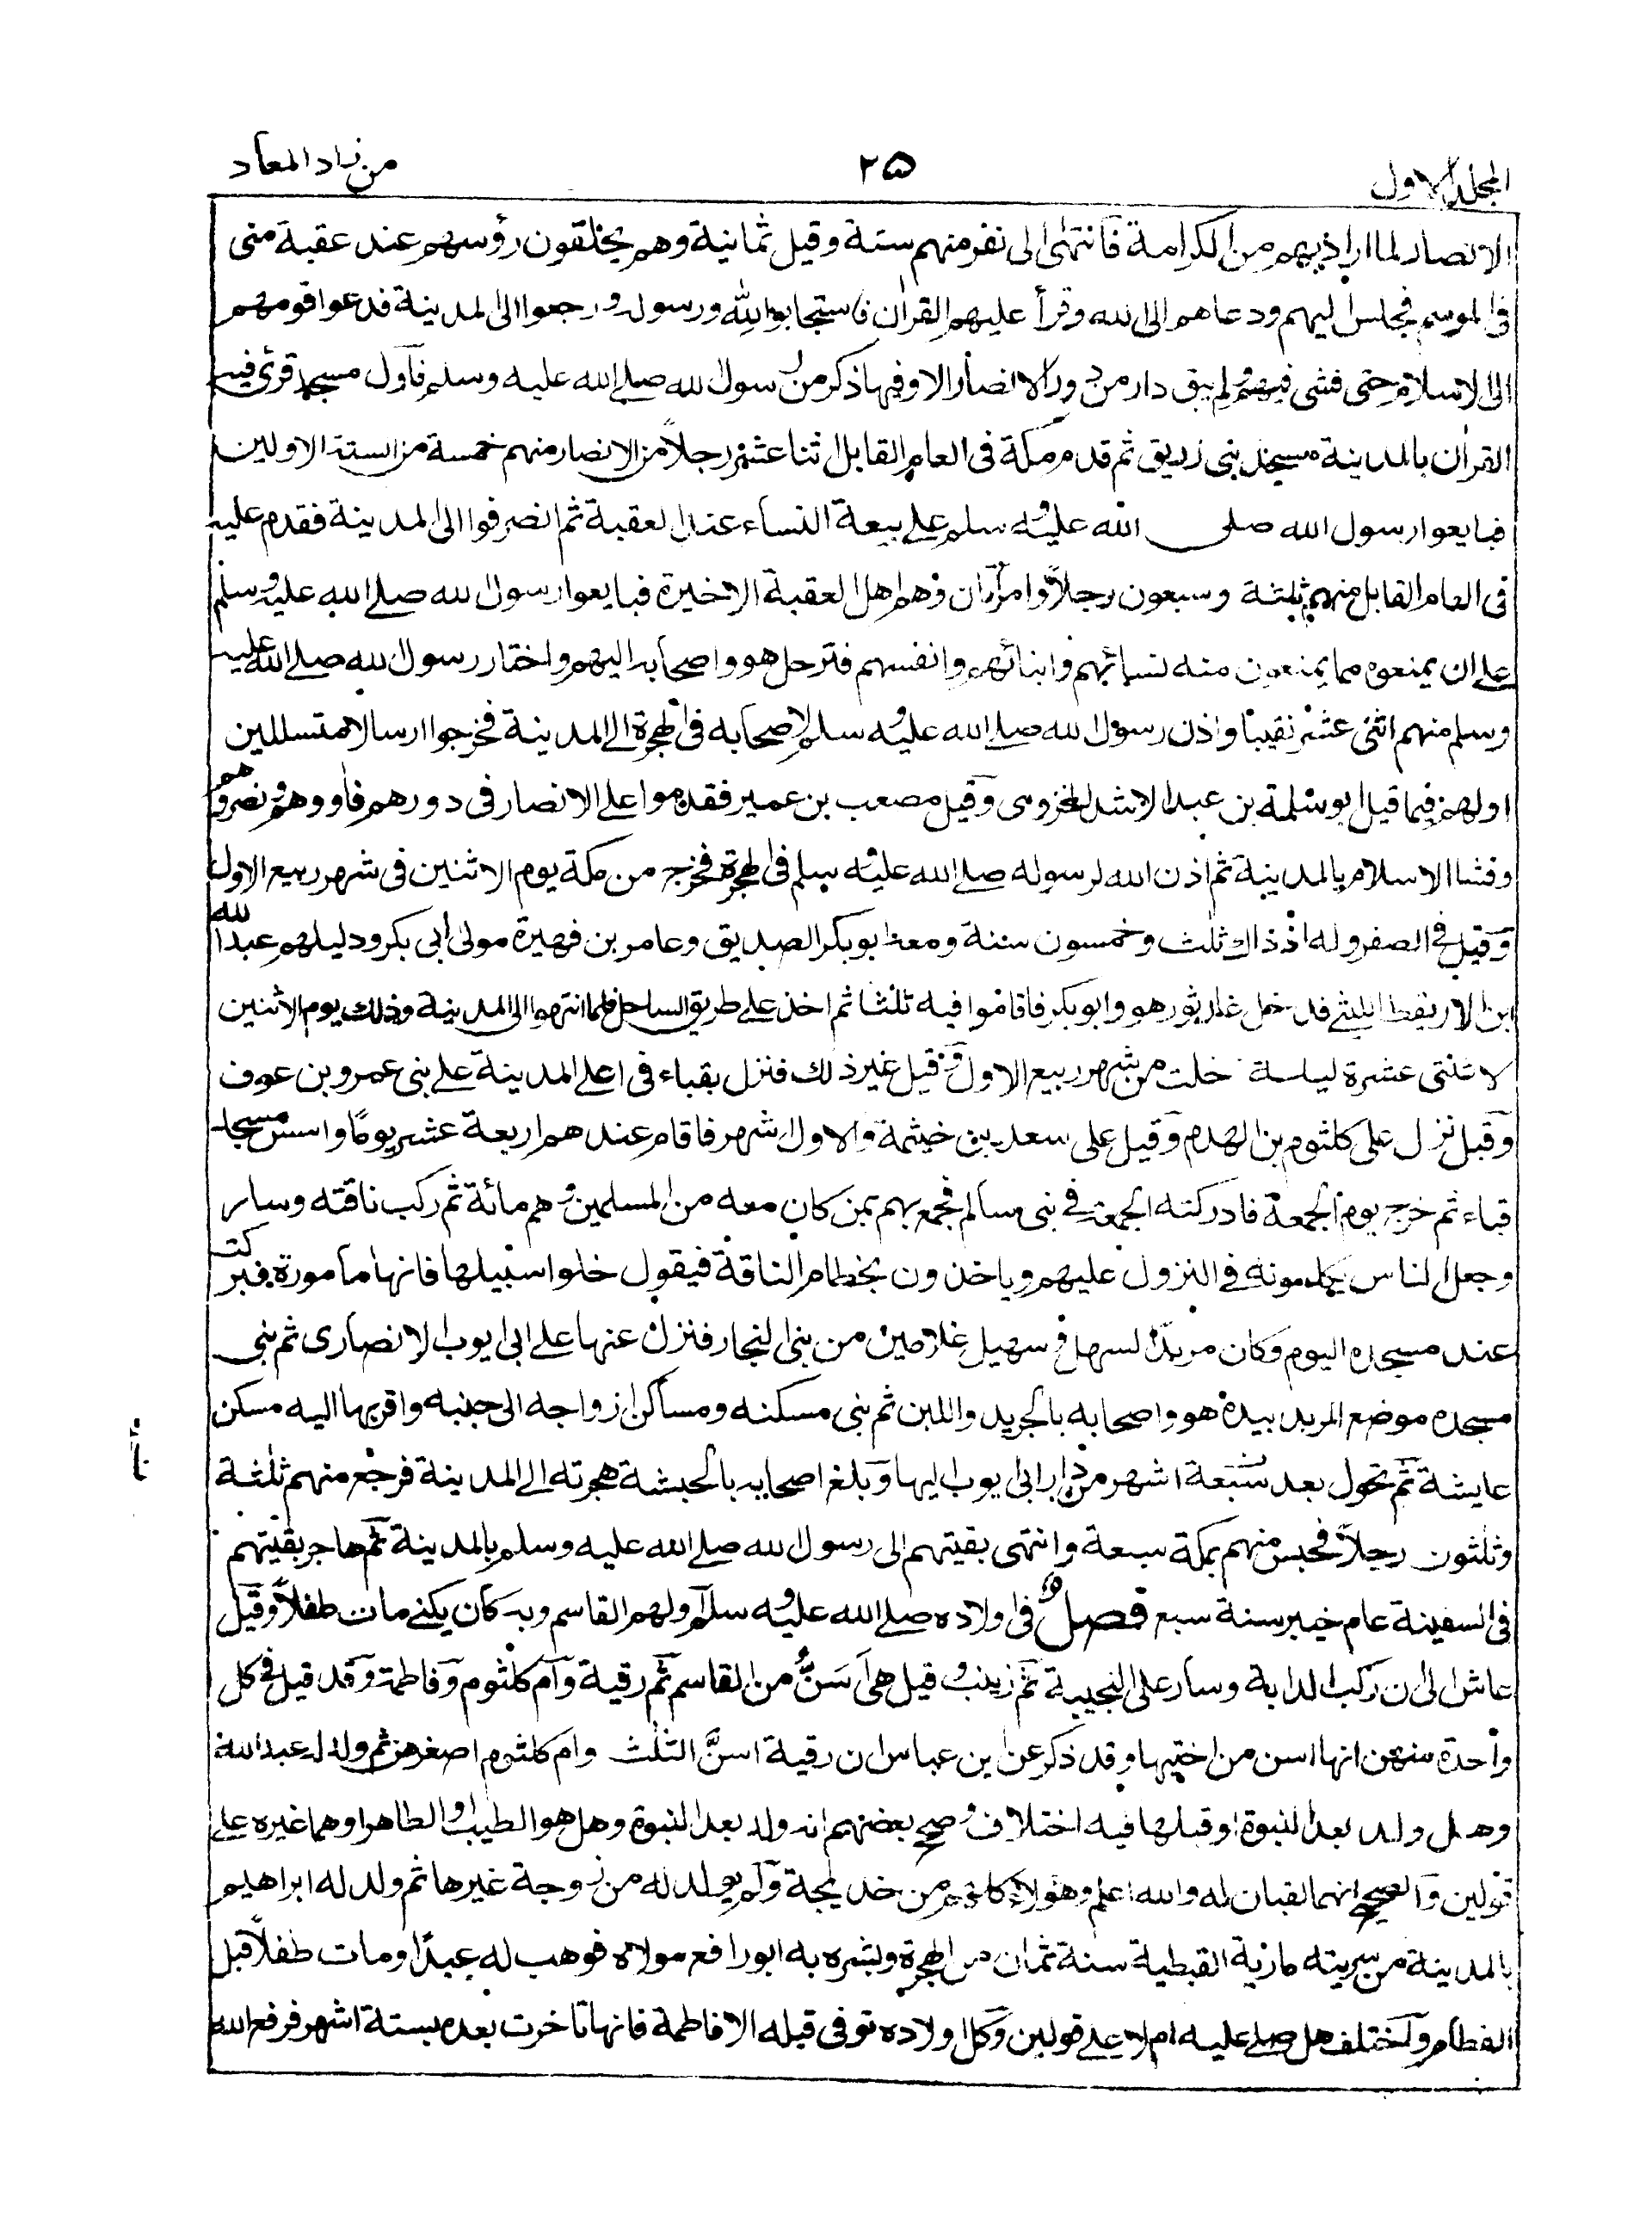 المجلد الاول
٢٥
من زاد المعاد
الانصار لما اراد بهم من الكرامة فانتهى الى نفر منهم ستة وقيل ثمانية وهم يحلقون رؤسهم عند عقبة منى
فى الموسم فجلس اليهم ودعاهم الى الله وقرأ عليهم القران فاستجابوا لله ورسوله ورجعوا الى المدينة فدعوا قومهم
الى الاسلام حتى فشى فيهم ولم يبق دار من دور الانصار الا وفيها ذكر من رسول الله صلے الله عليه وسلم فاول مسجد قرئ فيه
القران بالمدينة مسجد بنى زريق ثم قدم مكة فى العام القابل اثنا عشر رجلاً من الانصار منهم خمسة من الستة الاولين
فبايعوا رسول الله صلى الله عليه وسلم علے بيعة النساء عند العقبة ثم انصرفوا الى المدينة فقدم عليه
فى العام القابل منهم ثلثة وسبعون رجلاً وامرأتان وهم اهل العقبة الاخيرة فبايعوا رسول الله صلے الله عليه وسلم
علے ان يمنعوه مما يمنعون منه نسائهم وابنائهم وانفسهم فترحل هو واصحابه اليهم واختار رسول الله صلے الله عليه
وسلم منهم اثنى عشر نقيباً واذن رسول الله صلے الله عليه وسلم لاصحابه فى الهجرة الے المدينة فخرجوا ارسالا متسللين
اولهم فيما قيل ابو سلمة بن عبد الاشد المخزومى وقيل مصعب بن عمير فقدموا علے الانصار فى دورهم فاووهم ونصروهم
وفشا الاسلام بالمدينة ثم اذن الله لرسوله صلے الله عليه وسلم فى الهجرة فخرج من مكة يوم الاثنين فى شهر ربيع الاول
وقيل فے الصفر وله اذ ذاك ثلث وخمسون سنة ومعه ابو بكر الصديق وعامر بن فهيرة مولى أبى بكر ودليلهم عبد الله
بن الاريقط الليثے فدخل غار ثور هو وابو بكر فاقاموا فيه ثلثا ثم اخذ علے طريق الساحل فلما انتهوا الى المدينة وذلك يوم الاثنين
لاثنتى عشرة ليلة خلت من شهر ربيع الاول وقيل غير ذلك فنزل بقباء فى اعلے المدينة علے بنى عمرو بن عوف
وقيل نزل على كلثوم بن الهدم وقيل على سعد بن خيثمة والاول اشهر فاقام عندهم اربعة عشر يوماً واسس مسجد
قباء ثم خرج يوم الجمعة فادركته الجمعة فے بنى سالم فجمع بهم بمن كان معه من المسلمين وهم مائة ثم ركب ناقته وسار
وجعل الناس يكلمونه فے النزول عليهم وياخذون بخطام الناقة فيقول خلوا سبيلها فانها مأمورة فبركت
عند مسجده اليوم وكان مربداً لسهل و سهيل غلامين من بنى النجار فنزل عنها علے ابى ايوب الانصارى ثم بنى
مسجده موضع المربد بيده هو واصحابه بالجريد واللبن ثم بنى مسكنه ومساكن ازواجه الى جنبه واقربها اليه مسكن
عايشة ثم تحول بعد سبعة اشهر من دار ابى ايوب اليها وبلغ اصحابه بالحبشة هجرته الے المدينة فرجع منهم ثلثة
وثلثون رجلاً فحبس منهم بمكة سبعة وانتهى بقيتهم الى رسول الله صلے الله عليه وسلم بالمدينة ثم هاجر بقيتهم
فى السفينة عام خيبر سنة سبع فصل فى اولاده صلے الله عليه وسلم اولهم القاسم وبه كان يكنے مات طفلاً وقيل
عاش الى ان ركب الدابة وسار على النجيبة ثم زينب وقيل هى اَسَنُّ من القاسم ثم رقية وام كلثوم وفاطمة وقد قيل فے كل
واحدة منهن انها اسن من اختيها وقد ذكر عن ابن عباس ان رقية اسنُّ الثلث وام كلثوم اصغرهن ثم ولد له عبد الله
وهل ولد بعد النبوة او قبلها فيه اختلاف وصحح بعضهم انه ولد بعد النبوة وهل هو الطيب والطاهر او هما غيره علے
قولين والصحيح انهما لقبان له والله اعلم وهؤلاء كلهم من خديجة ولم يولد له من زوجة غيرها ثم ولد له ابراهيم
بالمدينة من سريته مارية القبطية سنة ثمان من الهجرة وبشره به ابو رافع مولاه فوهب له عبداً ومات طفلاً قبل
الفطام واختلف هل صلے عليه ام لا علے قولين وكل اولاده توفى قبله الا فاطمة فانها تاخرت بعده بستة اشهر فرفع الله